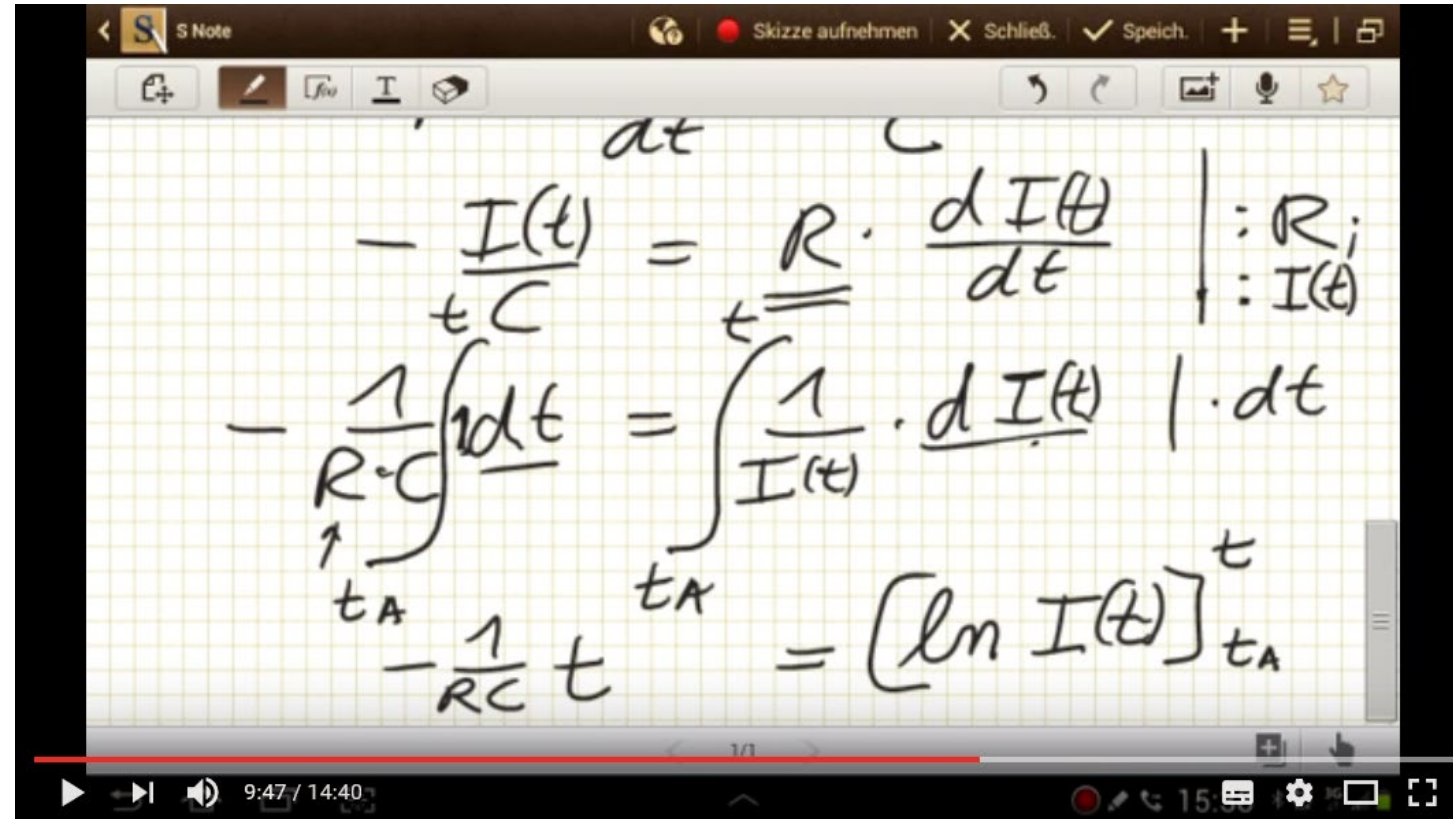 S Note Skizze aufnehmen Schließ. Speich.
f(x) T
dt C
- I(t)/C = R · d I(t)/dt | : R; : I(t)
- 1/(R·C) ∫_{t_A}^{t} 1 dt = ∫_{t_A}^{t} 1/I(t) · d I(t) | · dt
- 1/(RC) t = [ln I(t)]_{t_A}^{t}
1/1
9:47 / 14:40